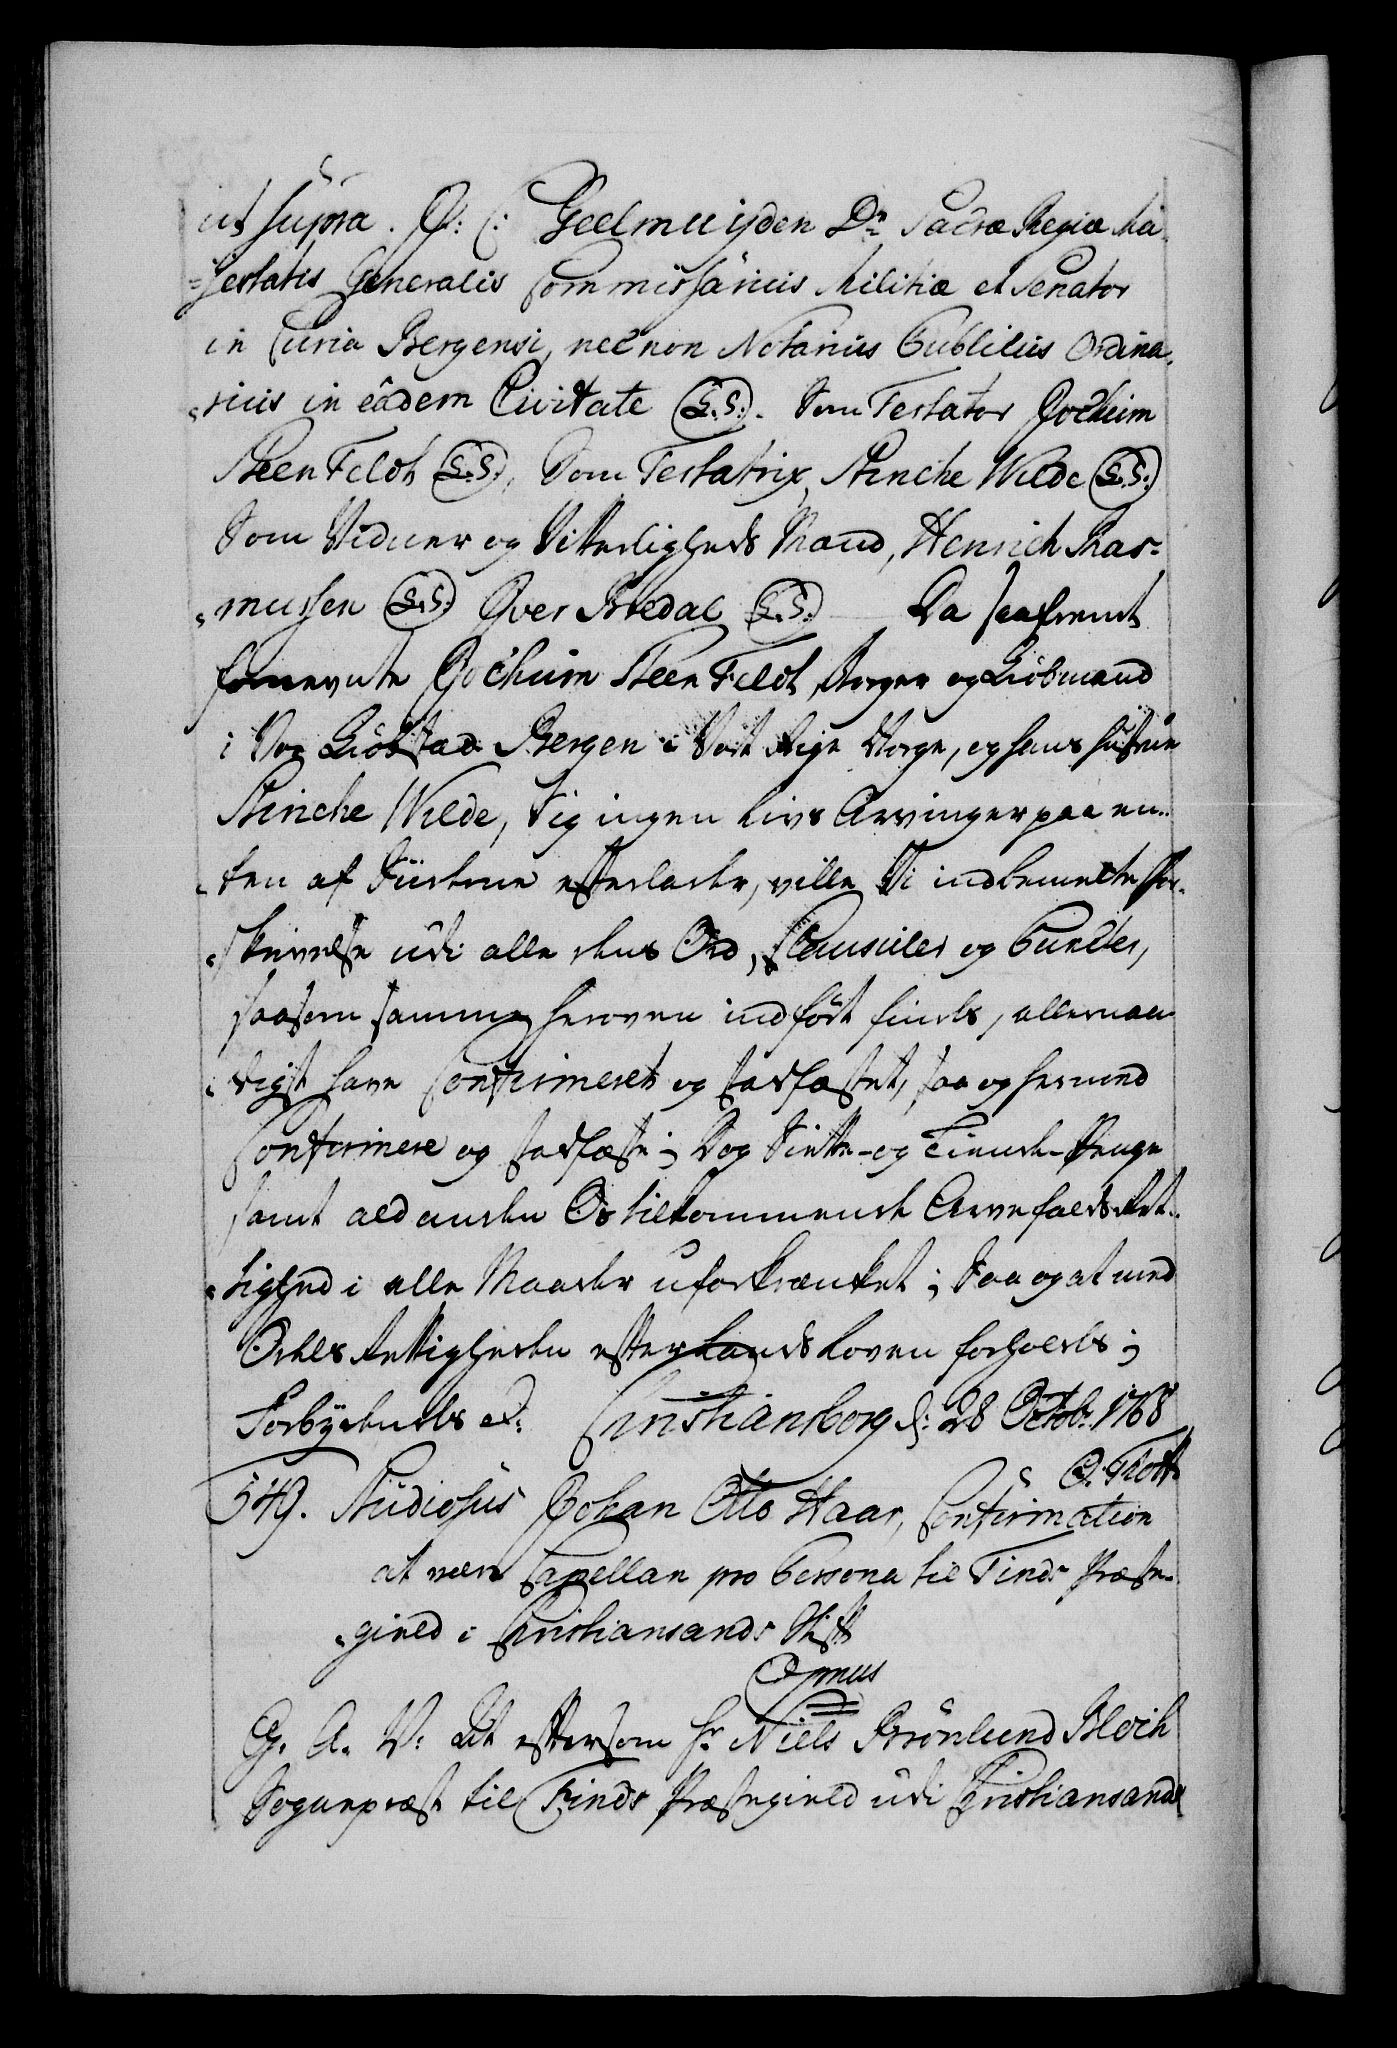 ut supra. J: C: Geelmuijden Dn. Sacræ Regiæ Ma-
-jestatis Generalis Commissarius Militiæ et Senator
in Curia Bergensi, nec non Notarius Publicus Ordina-
-rius in eâdem Civitate (L.S.). Som Testator Jochim
SteenFeldt (L.S:), Som Testatrix, Stinche Wilde (L.S:)
Som Vidner og Vitterligheds Mænd, Henrich Ras-
-mussen (L.S:) Iver Bredal (L.S:) Da saafremt
fornevnte Jochim SteenFeldt, Borger og Kiøbmand
i Vor Kiøbstad Bergen i Vort Rige Norge, og hans Hustrue
Stinche Wilde, Sig ingen Livs Arvinger paa en-
-ten af Siiderne efterlader, ville Vi indbemelte For-
-skrivelse udi alle dens Ord, Clausuler og Puncter,
saasom samme heroven indført findes, allernaa-
-digst have Confirmeret og stadfæstet, saa og hermed
Confirmere og stadfæste; Dog Siette- og Tiende-Penge
samt ald anden Os tilkommende Arvefalds Ret-
-tighed i alle Maader uforkrænket; Saa og at med
Odels Rettigheden efter Lands Loven forholdes;
Forbydendes etc: Christiansborg d: 28 Octobr: 1768
O. Thott
549. Studiosus Johan Otto Haar, Confirmation
at være Capellan pro Persona til Finds Præste-
-gield i Christiansands Stift
Opmus
C. A. V: At eftersom Hr Niels Brønlund Bloch
Sognepræst til Finds Præstegield udi Christiansands